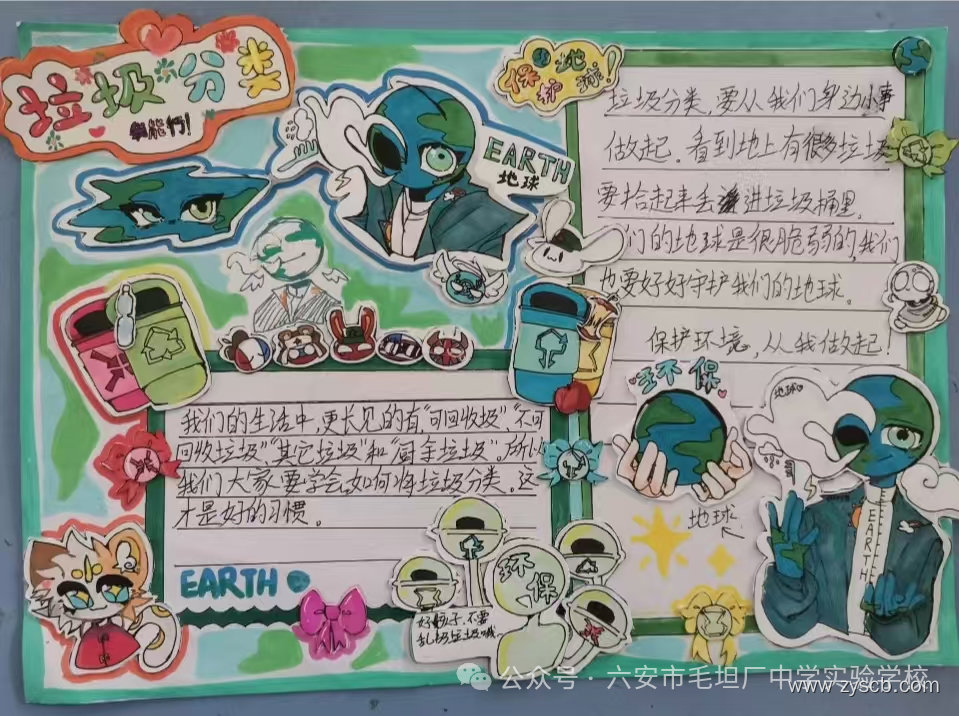 垃圾分类
我能行!
保护地球!
EARTH
地球
垃圾分类,要从我们身边小事
做起。看到地上有很多垃圾
要拾起来丢进垃圾桶里。
们的地球是很脆弱的,我们
也要好好守护我们的地球。
保护环境,从我做起!
我们的生活中,更长见的有“可回收圾”“不可
回收垃圾”“其它垃圾”和“厨余垃圾”。所以
我们大家要学会如何将垃圾分类。这
才是好的习惯。
EARTH
环保
地球
地球
EARTH
环保
好孩子,不要
乱扔垃圾哦
公众号·六安市毛坦厂中学实验学校
www.zyscb.com